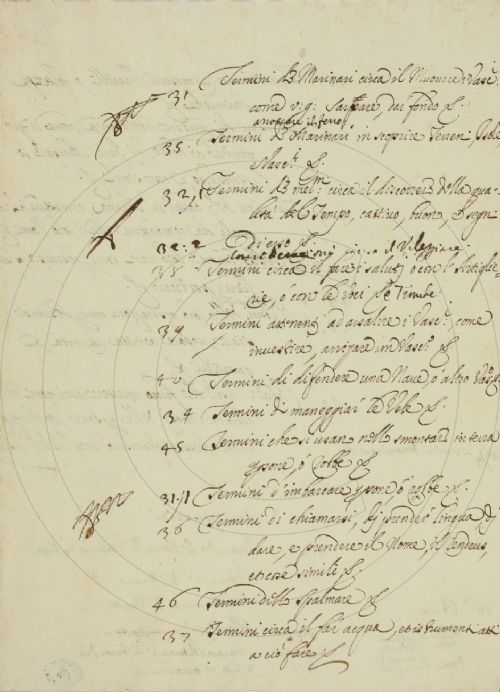 31 Termini de Marinari circa il Muovere i Vasc:
come v: g: Sarpare, dar fondo &.
annodare il ferro
35. Termini de Marinari in scoprire Terren, Isole
Vasc:i &.
32,1 Termini de med:mi circa il discorrere della qua-
lità del Tempo, cattivo, buono, &
32:2
33 Termini circa il fare i saluti o con l'Artiglie-
rie, o con le Voci &
39 Termini attenenti ad assalire i Vasc:i come
investire, arrivare un Vasc:o &.
40 Termini di difendere una Nave, o altro Vasc:o
34 Termini di maneggiar le Vele &.
45 Termini che si usan nello smontare in terra
psone, ò robbe &
31.11 Termini d'imbarcare psone ò robbe &.
36 Termini di chiamarsi, prendere lingua
dare, e prendere il Nome,
et cose simili &.
46 Termini dello Spalmare &
37 Termini circa il far acqua, et istrumenti atti
a ciò fare &